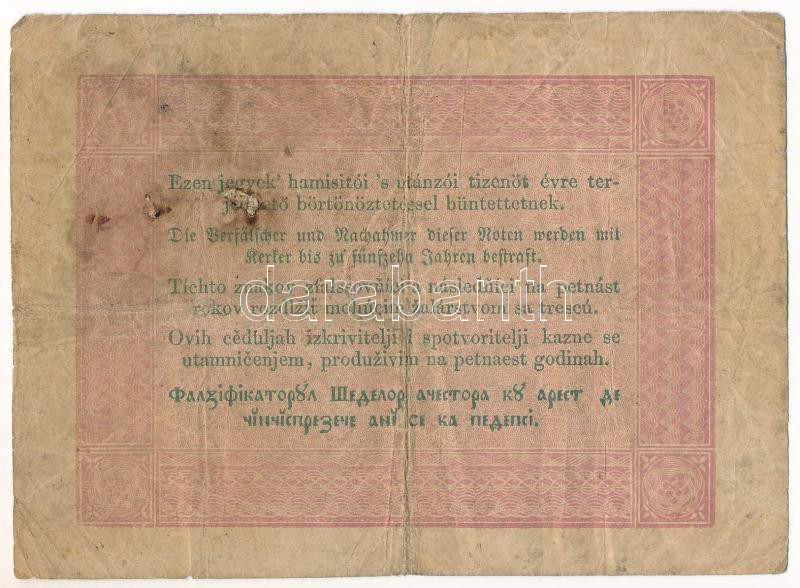 Ezen jegyek' hamisitói 's utánzói tizenöt évre ter-
börtönöztetéssel büntettetnek.
Die Verfälscher und Nachahmer dieser Noten werden mit
Kerker bis zu fünfzehn Jahren bestraft.
Tíchto znakov a následúíci na petnást
rokov mohúcím žalárstvom sa trescú.
darabanth
Ovih cěduljah izkrivitelji i spotvoritelji kazne se
utamničenjem, produživim na petnaest godinah.
Фалȣіфікаторȣл Шеделор ачестора кȣ арест де
чінчіспрезече ані се ва педепсі.